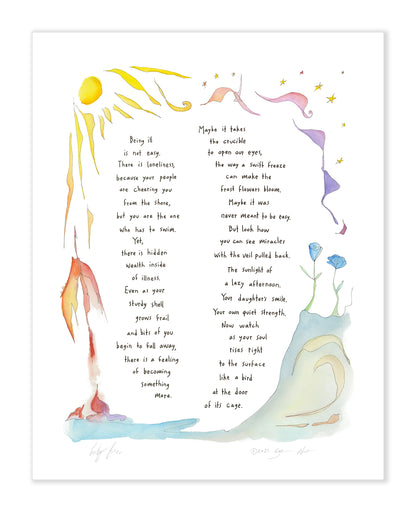 Being ill
is not easy.
There is loneliness,
because your people
are cheering you
from the shore,
but you are the one
who has to swim.
Yet,
there is hidden
wealth inside
of illness.
Even as your
sturdy shell
grows frail
and bits of you
begin to fall away,
there is a feeling
of becoming
something
more.
Maybe it takes
the crucible
to open our eyes,
the way a swift freeze
can make the
frost flowers bloom.
Maybe it was
never meant to be easy.
But look how
you can see miracles
with the veil pulled back.
The sunlight of
a lazy afternoon.
Your daughters smile.
Your own quiet strength.
Now watch
as your soul
rises right
to the surface
like a bird
at the door
of its cage.